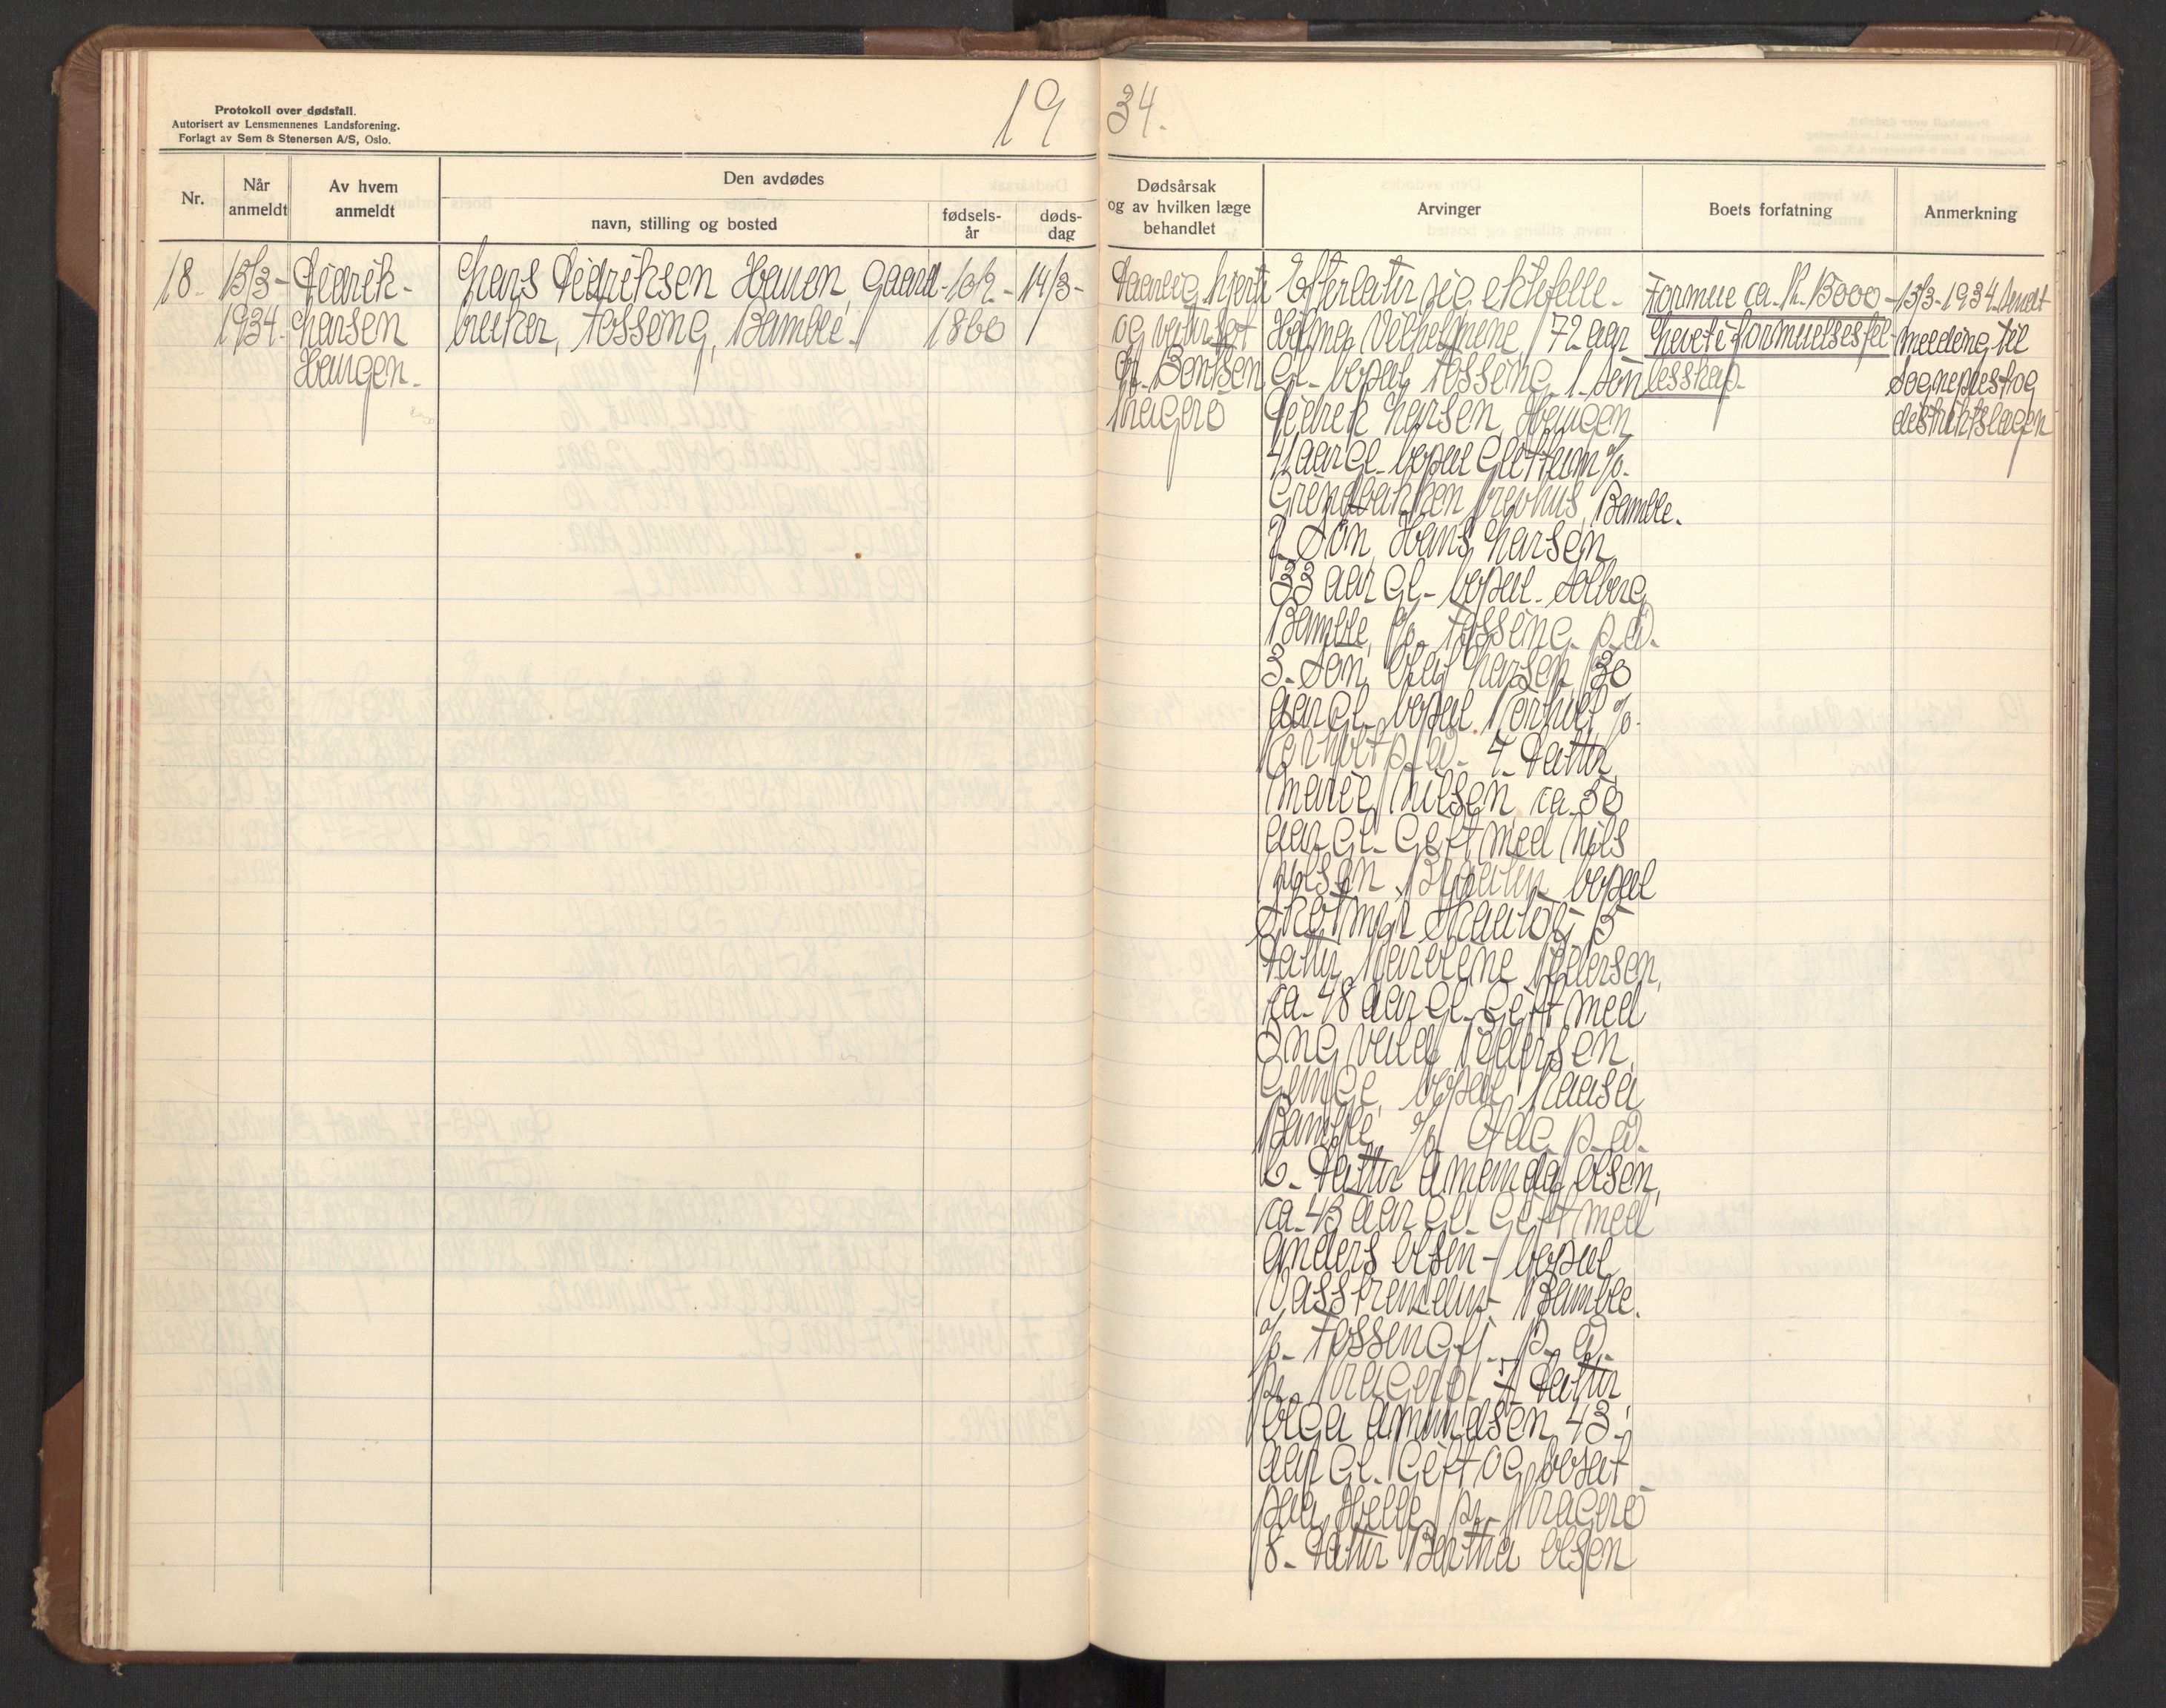 Protokoll over dødsfall.
Autorisert av Lensmennenes Landsforening.
Forlagt av Sem & Stenersen A/S, Oslo.
19 34.
Nr.
Når anmeldt
Av hvem anmeldt
Den avdødes
navn, stilling og bosted
fødsels-år
døds-dag
Dødsårsak og av hvilken læge behandlet
Arvinger
Boets forfatning
Anmerkning
18. 15/3- 1934.
Didrik-
Larsen
Haugen.
Lars Didriksen Hauen, Gaard-
bruker, Fossing, Bamble.
10/2-
1860
14/3-
Daarlig hjerte
og vatersot
Dr. Bentsen
Kragerø
Efterlater sig ektefelle.
Helma Vilhelmine, 72 aar
Gl- bopæl Fossing. 1. Søn
Didrik Larsen Haugen
41 aar Gl- bopæl Glittum p/o.
Grindbakken Brevhus, Bamble.
2. Søn, Hans Larsen,
33 aar Gl- bopæl- Solberg
Bamble, p/o. Fossing. p. a.
3. Søn, Olaf Larsen, 30
aar Gl- bopæl. p/o.
p. a- 4. Datter,
Marie Nilsen, ca. 50
aar Gl. Gift med Nils
Nilsen, bopæl
Skaatøy- 5
Datter, Pedersen,
ca- 48 aar Gl- Gift med
Pedersen,
bopæl
Bamble p/o p. a.
6- Datter Amanda Olsen,
ca- 43 aar Gl. Gift med
Anders Olsen- bopæl
Bamble.
p/o- Fossing p. a.
pr. Kragerø 7. Datter
Olga Amundsen, 43
aar Gl. Gift og bosat
paa Helle pr- Kragerø
8- Datter Bertha Olsen
Formue ca. Kr. 13000-
Levet i formuesfel-
lesskap.
15/3-1934. Sendt
melding til
Sogneprest og
distriktslægen